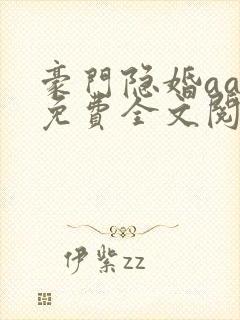 豪門隐婚aa
免費全文閱
伊紫zz